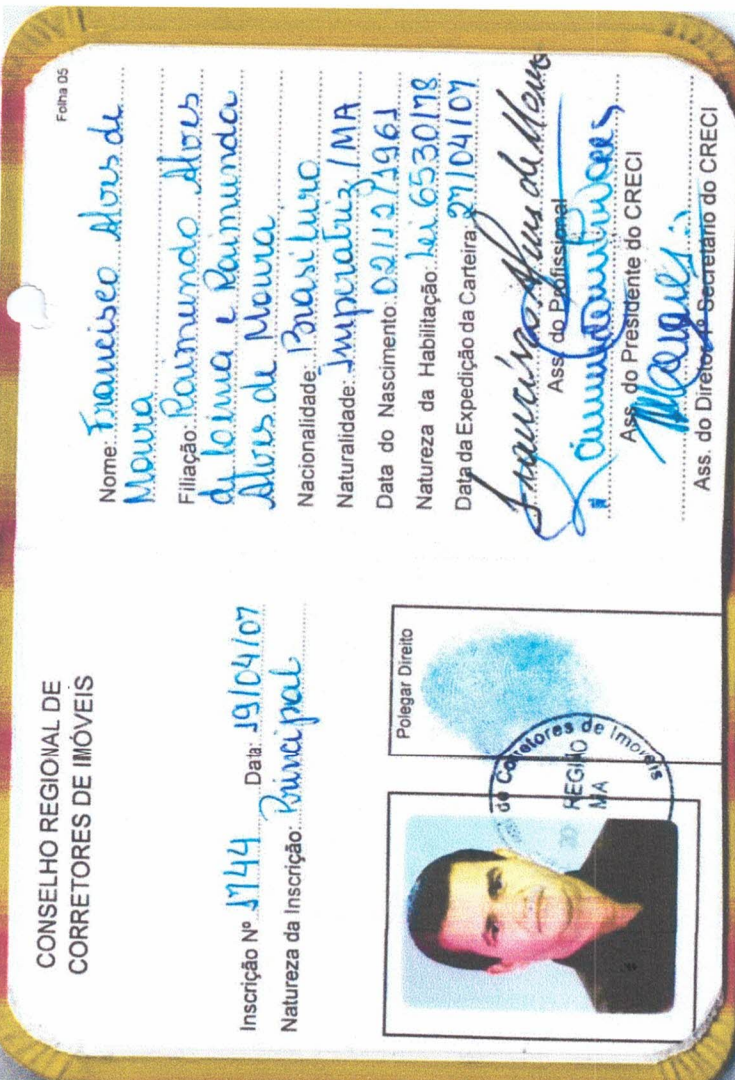 CONSELHO REGIONAL DE
CORRETORES DE IMÓVEIS
Inscrição Nº 1744 Data: 19/04/07
Natureza da Inscrição: Principal
Polegar Direito
de Corretores de Imóveis
REGIÃO
MA
Folha 05
Nome: Francisco Alves de
Moura
Filiação: Raimundo Alves
de Lima e Raimunda
Alves de Moura
Nacionalidade: Brasileiro
Naturalidade: Imperatriz/MA
Data do Nascimento: 02/12/1961
Natureza da Habilitação: Lei 6530/78
Data da Expedição da Carteira: 27/04/07
Francisco Alves de Moura
Ass. do Profissional
Ass. do Presidente do CRECI
Ass. do Diretor 1º Secretário do CRECI